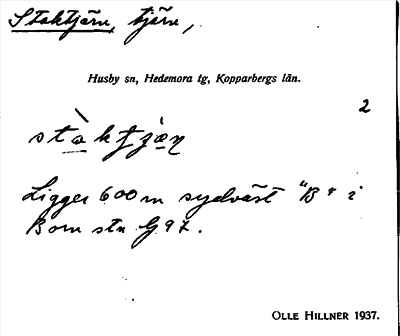 Staktjärn, tjärn,
Husby sn, Hedemora tg, Kopparbergs län.
2
stàktjæ̀n
Ligger 600 m sydväst "B" i
Born stn G 97.
OLLE HILLNER 1937.